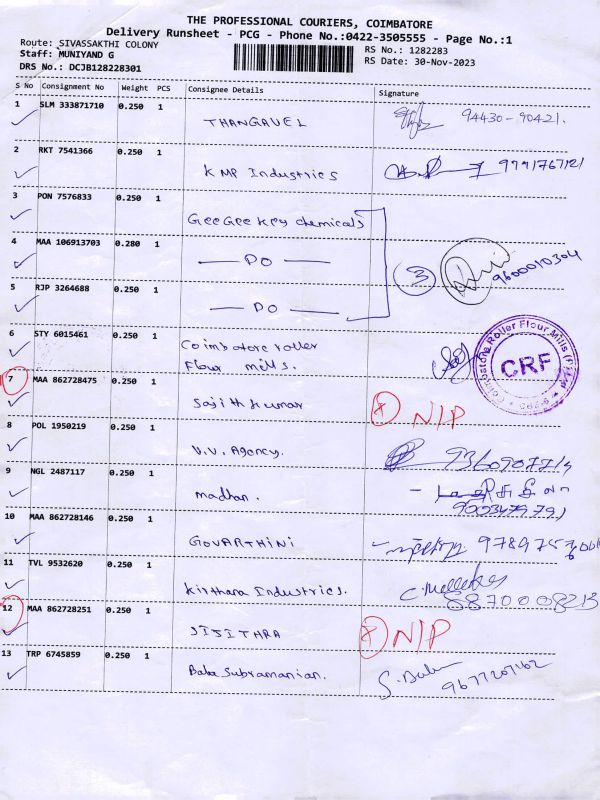 THE PROFESSIONAL COURIERS, COIMBATORE
Delivery Runsheet - PCG - Phone No.:0422-3505555 - Page No.:1
Route: SIVASSAKTHI COLONY RS No.: 1282283
Staff: MUNIYAND G RS Date: 30-Nov-2023
DRS No.: DCJB128228301
S No Consignment No Weight PCS Consignee Details Signature
1 SLM 333871710 0.250 1 THANGAVEL 94430-90421.
2 RKT 7541366 0.250 1 KMP Industries 9791767121
3 PON 7576833 0.250 1 GeeGee Key chemicals
4 MAA 106913703 0.280 1 — DO — 3 9600010304
5 RJP 3264688 0.250 1 — DO —
6 STY 6015461 0.250 1 Coimbatore roller
Flour mills.
Coimbatore Roller Flour Mills (P) Ltd
CRF
7 MAA 862728475 0.250 1 Sajith kumar X N/P
8 POL 1950219 0.250 1 V.V. Agency.
9 NGL 2487117 0.250 1 madhan.
10 MAA 862728146 0.250 1 GOVARTHINI
11 TVL 9532620 0.250 1 Kirthara Industries.
8870008213
12 MAA 862728251 0.250 1 JIJITHRA X N/P
13 TRP 6745859 0.250 1 Bala Subramanian. S. Balu